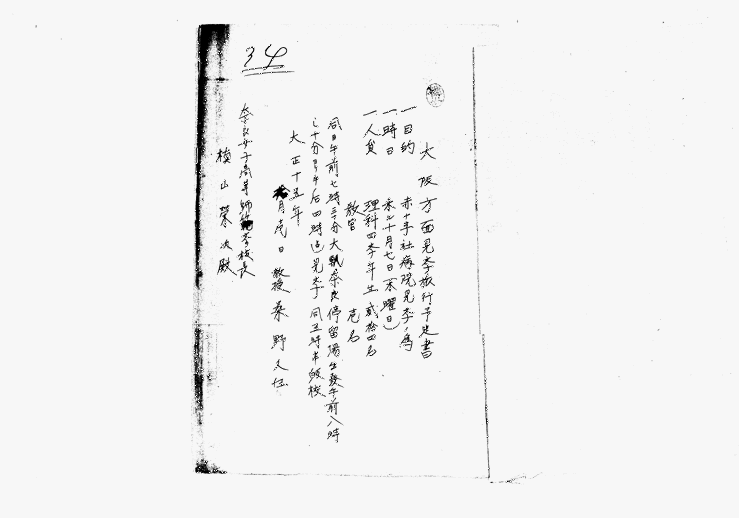 34
大阪方面見学旅行予定書
一目的 赤十字社病院見学ノ為
一時日 本年十月七日（木曜日）
一人員 理科四学年生 貳拾四名
教官 壱名
同日午前七時三十分大軌奈良停留場出発午前八時
三十分ヨリ午后四時迄見学 同五時半帰校
大正十五年
月 日 教授 桑野久任
奈良女子高等師範学校長
槇山榮次殿